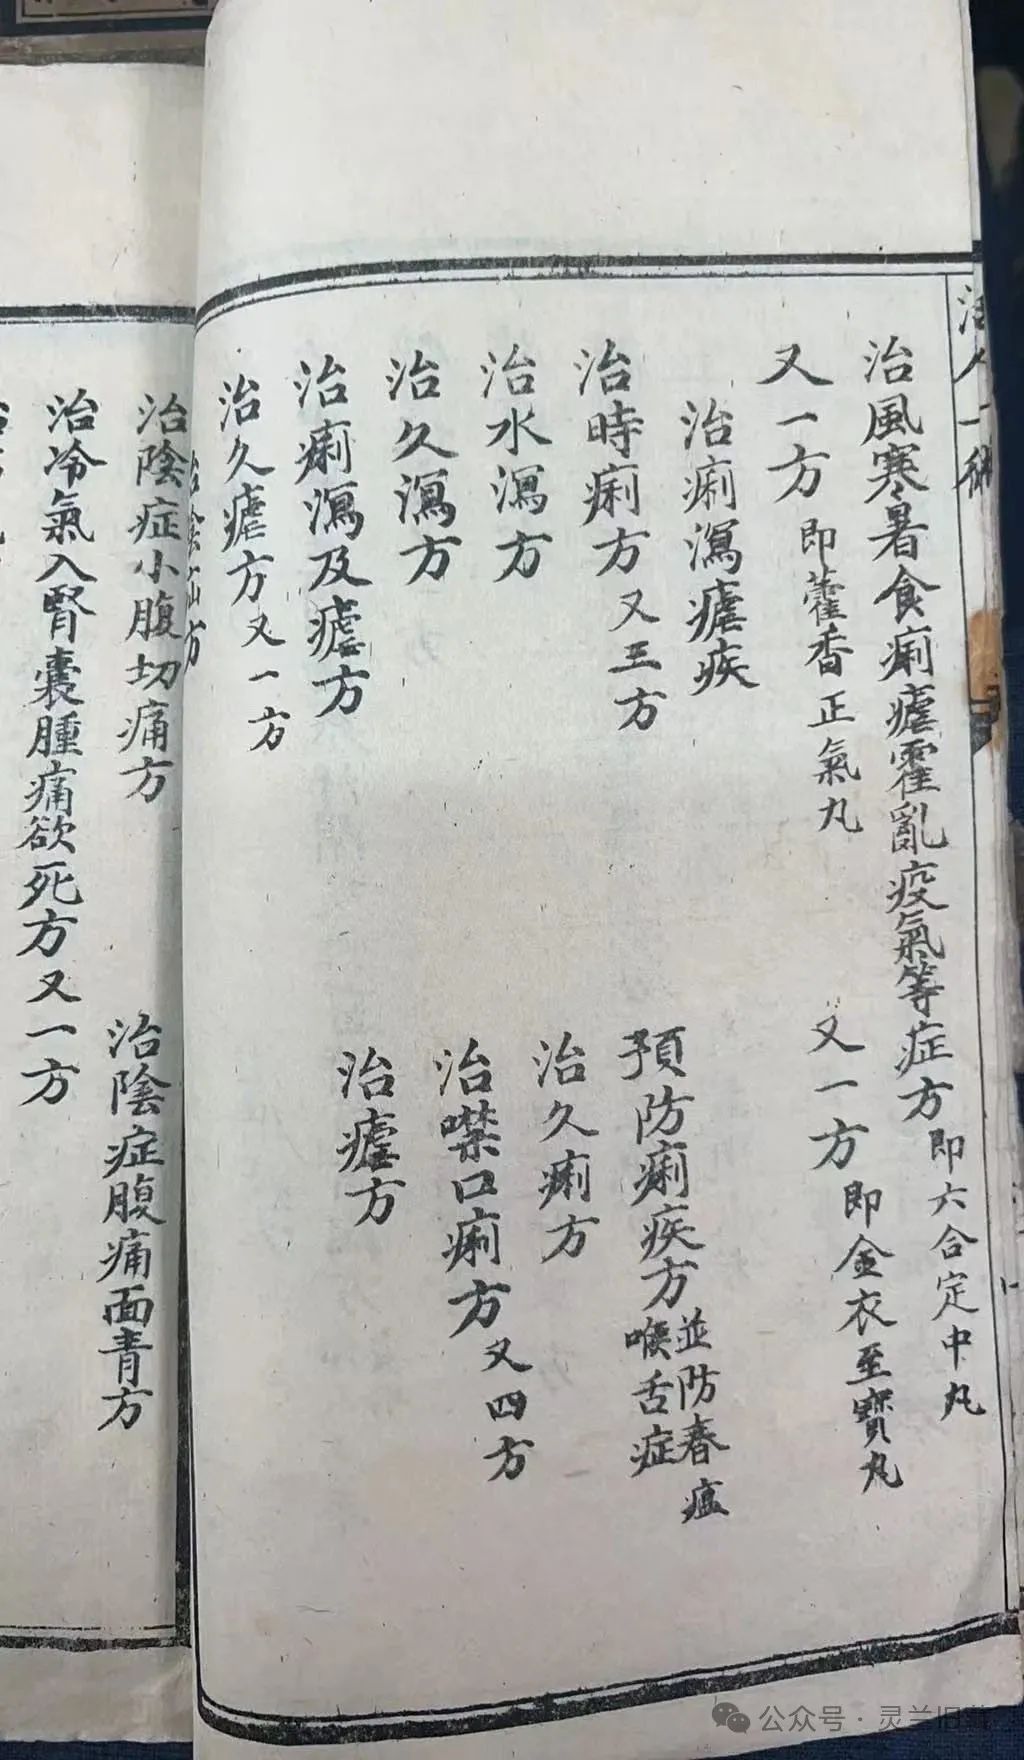 活人一術
治風寒暑食痢瘧霍亂疫氣等症方 即六合定中丸
又一方 即藿香正氣丸
又一方 即金衣至寶丸
治痢瀉瘧疾
預防痢疾方 並防春瘟喉舌症
治時痢方 又三方
治久痢方
治水瀉方
治噤口痢方 又四方
治久瀉方
治瘧方
治痢瀉及瘧方
治久瘧方 又一方
治陰症小腹切痛方
治陰症腹痛面青方
治冷氣入腎囊腫痛欲死方 又一方
公众号·灵兰旧